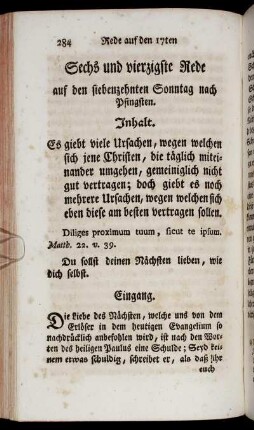 284 Rede auf den 17ten
Sechs und vierzigste Rede
auf den siebenzehnten Sonntag nach
Pfingsten.
Inhalt.
Es giebt viele Ursachen, wegen welchen
sich jene Christen, die täglich mitei-
nander umgehen, gemeiniglich nicht
gut vertragen; doch giebt es noch
mehrere Ursachen, wegen welchen sich
eben diese am besten vertragen sollen.
Diliges proximum tuum, sicut te ipsum.
Matth. 22. v. 39.
Du sollst deinen Nächsten lieben, wie
dich selbst.
Eingang.
Die Liebe des Nächsten, welche uns von dem
Erlöser in dem heutigen Evangelium so
nachdrücklich anbefohlen wird, ist nach den Wor-
ten des heiligen Paulus eine Schulde; Seyd kei-
nem etwas schuldig, schreibet er, als daß ihr
euch